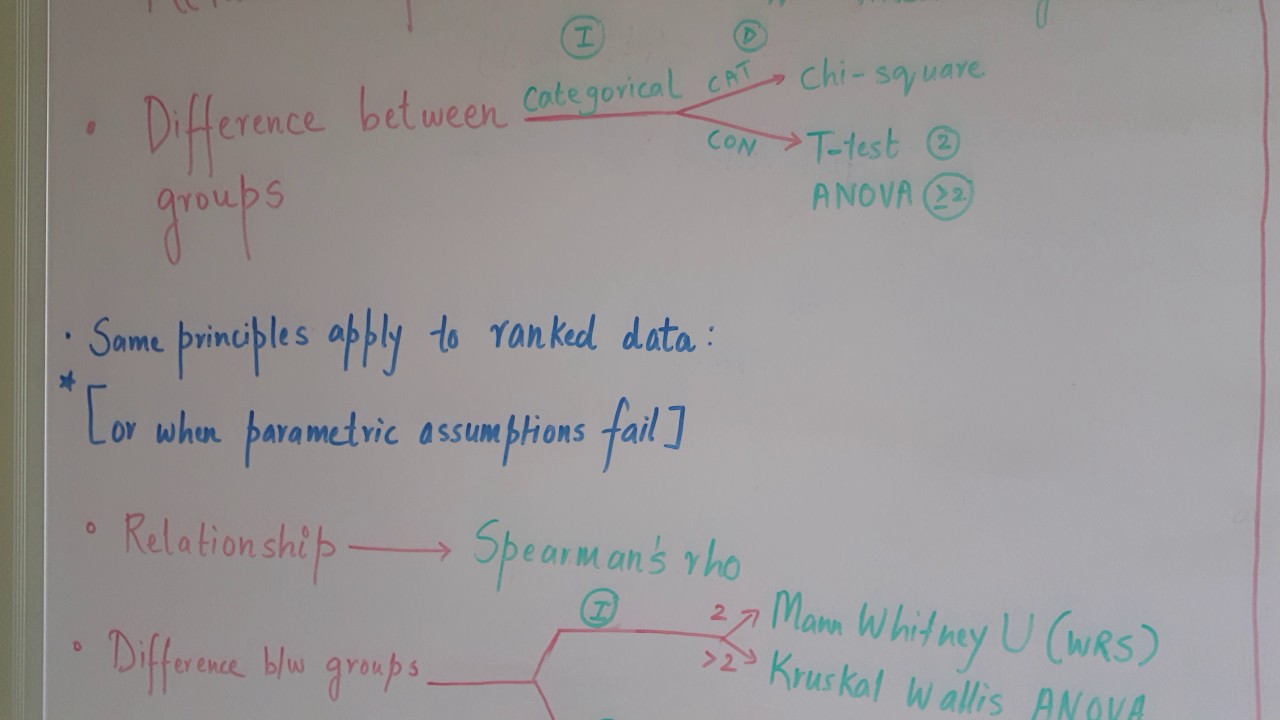 I D
Difference between categorical CAT Chi-square
groups CON T-test 2
ANOVA ≥2
• Same principles apply to ranked data:
* [or when parametric assumptions fail]
° Relationship → Spearman's rho
I 2 Mann Whitney U (WRS)
° Difference b/w groups >2 Kruskal Wallis ANOVA